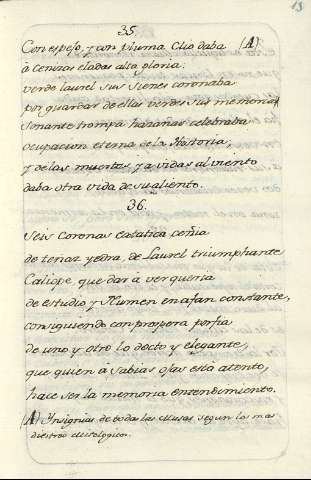 13
35.
Con espejo, y con pluma Clio daba (A)
à cenizas eladas alta gloria:
verde laurel sus sienes coronaba
por guardar de ellas verdes sus memorias
sonante trompa hazañas celebraba
ocupacion eterna de la Historia,
y de las muertas, ya vidas al viento
daba otra vida de su aliento.
36.
Seis Coronas extatica ceñia
de tenaz yedra, de Laurel triumphante
Caliope, que dar à ver queria
de estudio y Numen en afan constante,
consiguiendo con prospera porfia
de uno y otro lo docto y elegante,
que quien à sabias ojas està atento,
hace ser la memoria entendimiento.
(A) Ynsignias de todas las Musas segun los mas
diestros Mitologicos.